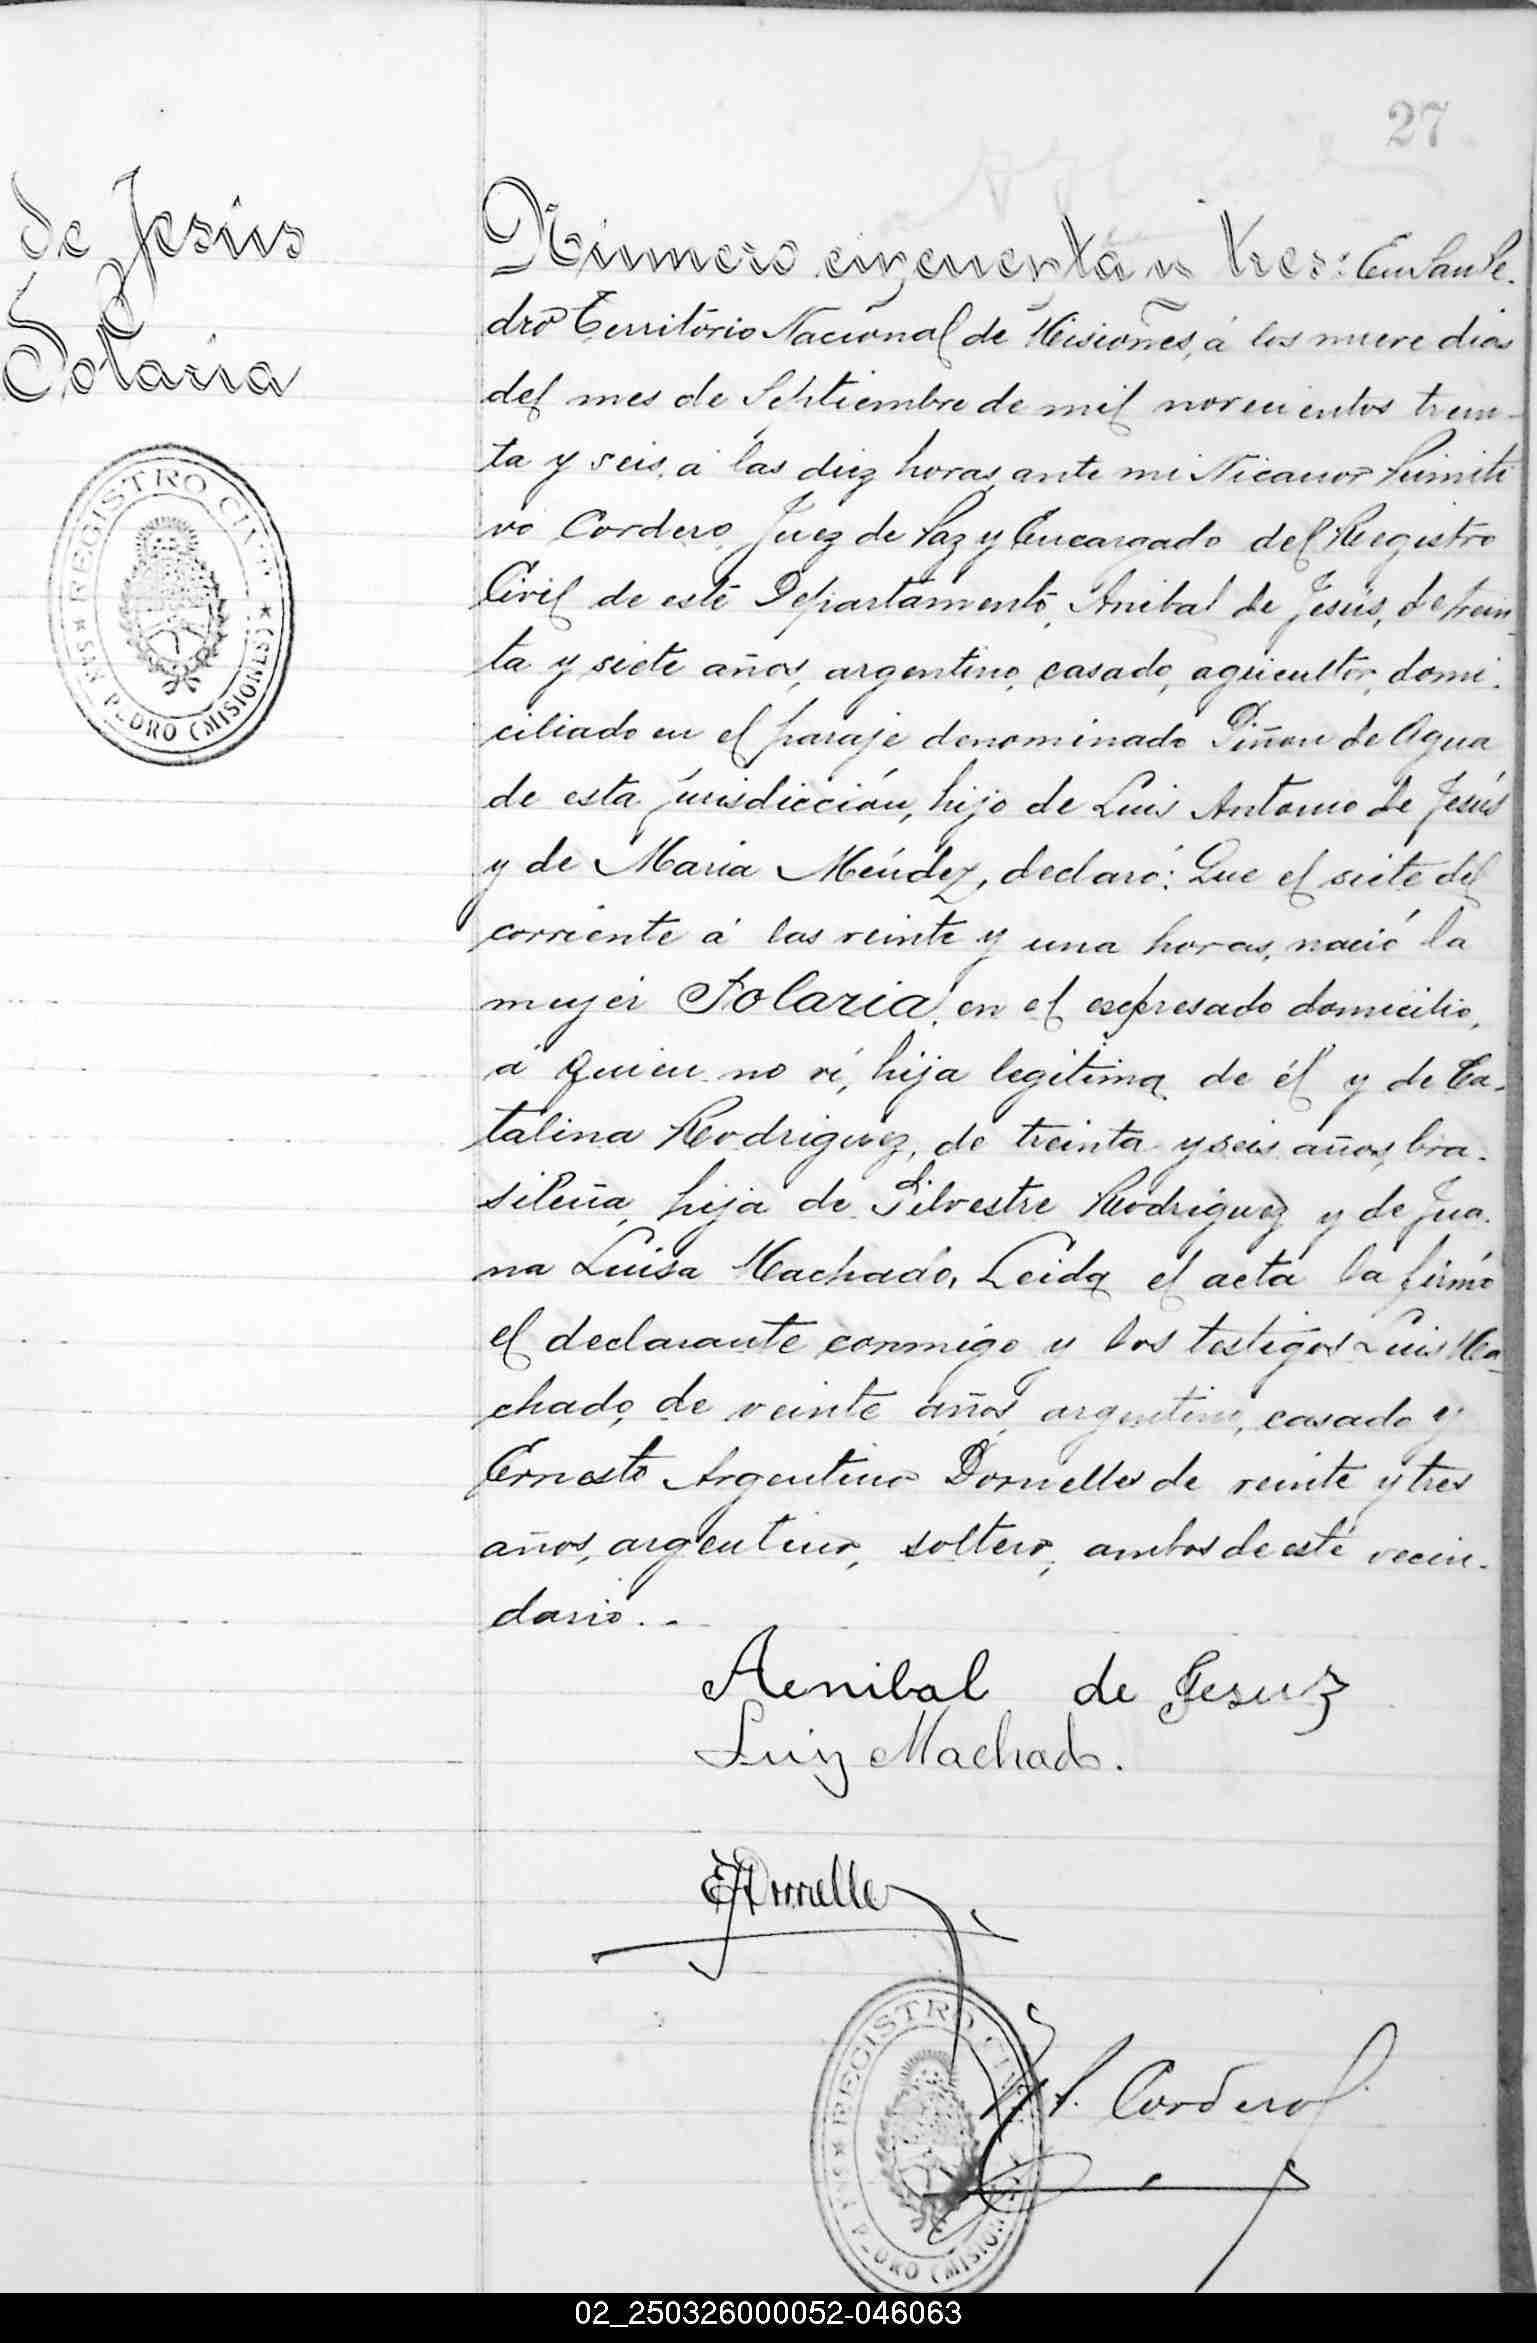 27
de Jesús
Polaria
REGISTRO CIVIL
SAN PEDRO (MISIONES)
Número cincuenta y tres: En San Pe-
dro Territorio Nacional de Misiones, á los nueve dias
del mes de Septiembre de mil novecientos trein-
ta y seis, á las diez horas, ante mi Nicanor Primiti
vo Cordero, Juez de Paz y Encargado del Registro
Civil de este Departamento, Anibal de Jesús, de trein-
ta y siete años, argentino, casado, agricultor, domi-
ciliado en el paraje denominado Piñon de Agua
de esta jurisdicción, hijo de Luis Antonio de Jesús
y de Maria Méndez, declaró: Que el siete del
corriente á las veinte y una horas, nació la
mujer Polaria, en el expresado domicilio,
á quien no ví, hija legitima de él y de Ca-
talina Rodriguez, de treinta y seis años, bra-
sileña, hija de Silvestre Rodriguez y de Jua-
na Luisa Machado, Leida el acta la firmó
el declarante conmigo y los testigos Luis Ma-
chado, de veinte años, argentino, casado y
Ernesto Argentino Dornelles de veinte y tres
años, argentino, soltero, ambos de este vecin-
dario.--
Aenibal de Jesuz
Luiz Machado.
EADornelles
REGISTRO CIVIL
SAN PEDRO (MISIONES)
N. P. Cordero
02_250326000052-046063